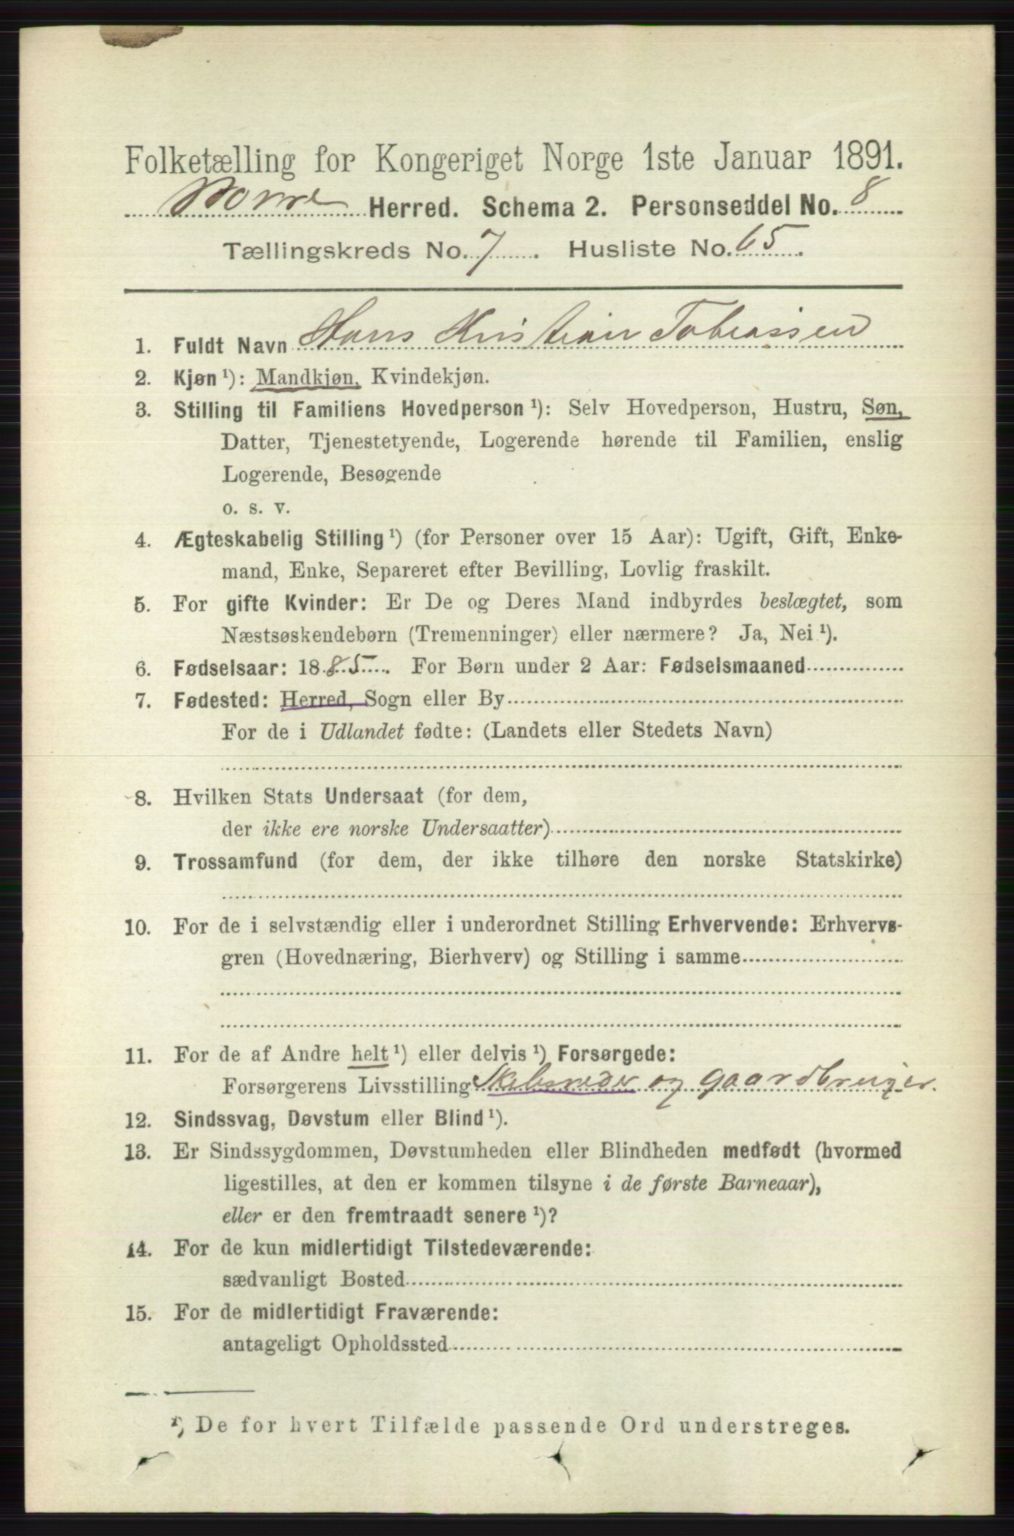 Folketælling for Kongeriget Norge 1ste Januar 1891.
Borre Herred. Schema 2. Personseddel No. 8
Tællingskreds No. 7. Husliste No. 65.
1. Fuldt Navn Hans Kristian Tobiassen
2. Kjøn ¹): Mandkjøn, Kvindekjøn.
3. Stilling til Familiens Hovedperson ¹): Selv Hovedperson, Hustru, Søn,
Datter, Tjenestetyende, Logerende hørende til Familien, enslig
Logerende, Besøgende
o. s. v.
4. Ægteskabelig Stilling ¹) (for Personer over 15 Aar): Ugift, Gift, Enke-
mand, Enke, Separeret efter Bevilling, Lovlig fraskilt.
5. For gifte Kvinder: Er De og Deres Mand indbyrdes beslægtet, som
Næstsøskendebørn (Tremenninger) eller nærmere? Ja, Nei ¹).
6. Fødselsaar: 1885. For Børn under 2 Aar: Fødselsmaaned
7. Fødested: Herred, Sogn eller By
For de i Udlandet fødte: (Landets eller Stedets Navn)
8. Hvilken Stats Undersaat (for dem,
der ikke ere norske Undersaatter)
9. Trossamfund (for dem, der ikke tilhøre den norske Statskirke)
10. For de i selvstændig eller i underordnet Stilling Erhvervende: Erhvervs-
gren (Hovednæring, Bierhverv) og Stilling i samme
11. For de af Andre helt ¹) eller delvis ¹) Forsørgede:
Forsørgerens Livsstilling Skibsreder og gaardbruger.
12. Sindssvag, Døvstum eller Blind ¹).
13. Er Sindssygdommen, Døvstumheden eller Blindheden medfødt (hvormed
ligestilles, at den er kommen tilsyne i de første Barneaar),
eller er den fremtraadt senere ¹)?
14. For de kun midlertidigt Tilstedeværende:
sædvanligt Bosted
15. For de midlertidigt Fraværende:
antageligt Opholdssted
¹) De for hvert Tilfælde passende Ord understreges.